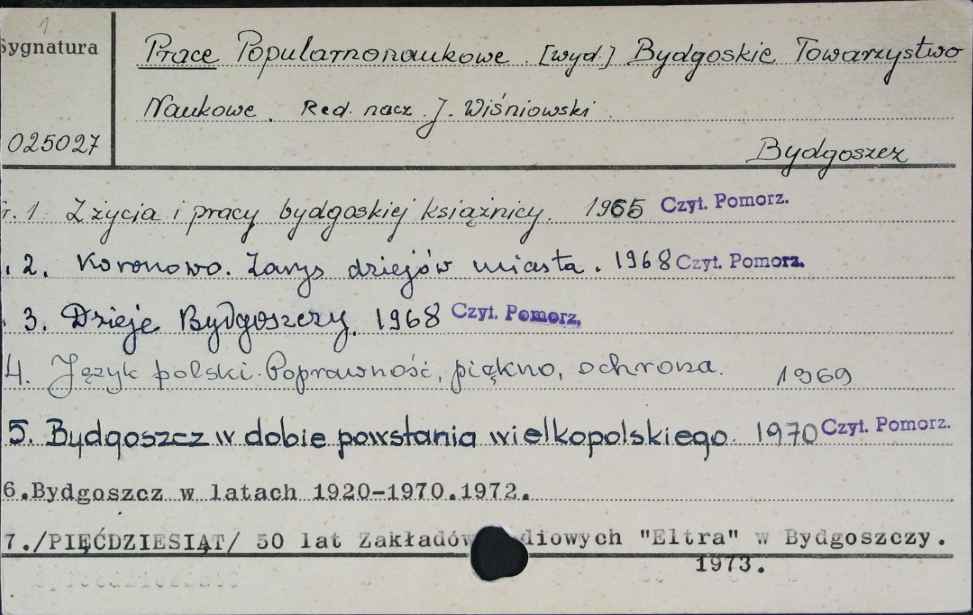 1
Sygnatura
Prace Popularnonaukowe. [wyd.] Bydgoskie Towarzystwo
Naukowe. Red. nacz. J. Wiśniowski
025027
Bydgoszcz
r. 1 Z życia i pracy bydgoskiej książnicy. 1965 Czyt. Pomorz.
. 2. Koronowo. Zarys dziejów miasta. 1968 Czyt. Pomorz.
. 3. Dzieje Bydgoszczy. 1968 Czyt. Pomorz.
4. Język polski. Poprawność, piękno, ochrona. 1969
5. Bydgoszcz w dobie powstania wielkopolskiego. 1970 Czyt. Pomorz.
6. Bydgoszcz w latach 1920-1970. 1972.
7. /PIĘĆDZIESIĄT/ 50 lat Zakładów diowych "Eltra" w Bydgoszczy.
1973.